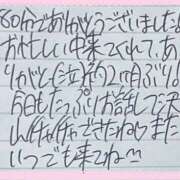 60分でありがとうございました!
お忙しい中来てくれて、あ
りがとし(泣)約2ヶ月ぶり!
今日もたっぷりお話して決
しんイチャイチャできたね!また
いつでも来てね〜